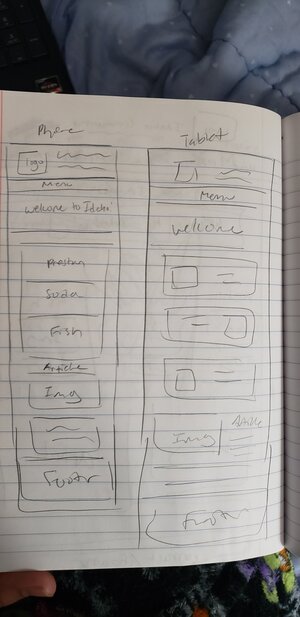 Phone
Logo
Menu
Welcome to Idaho
Preston
Soda
Fish
Article
Img
Footer
Tablet
Menu
Welcome
Img
Article
Footer